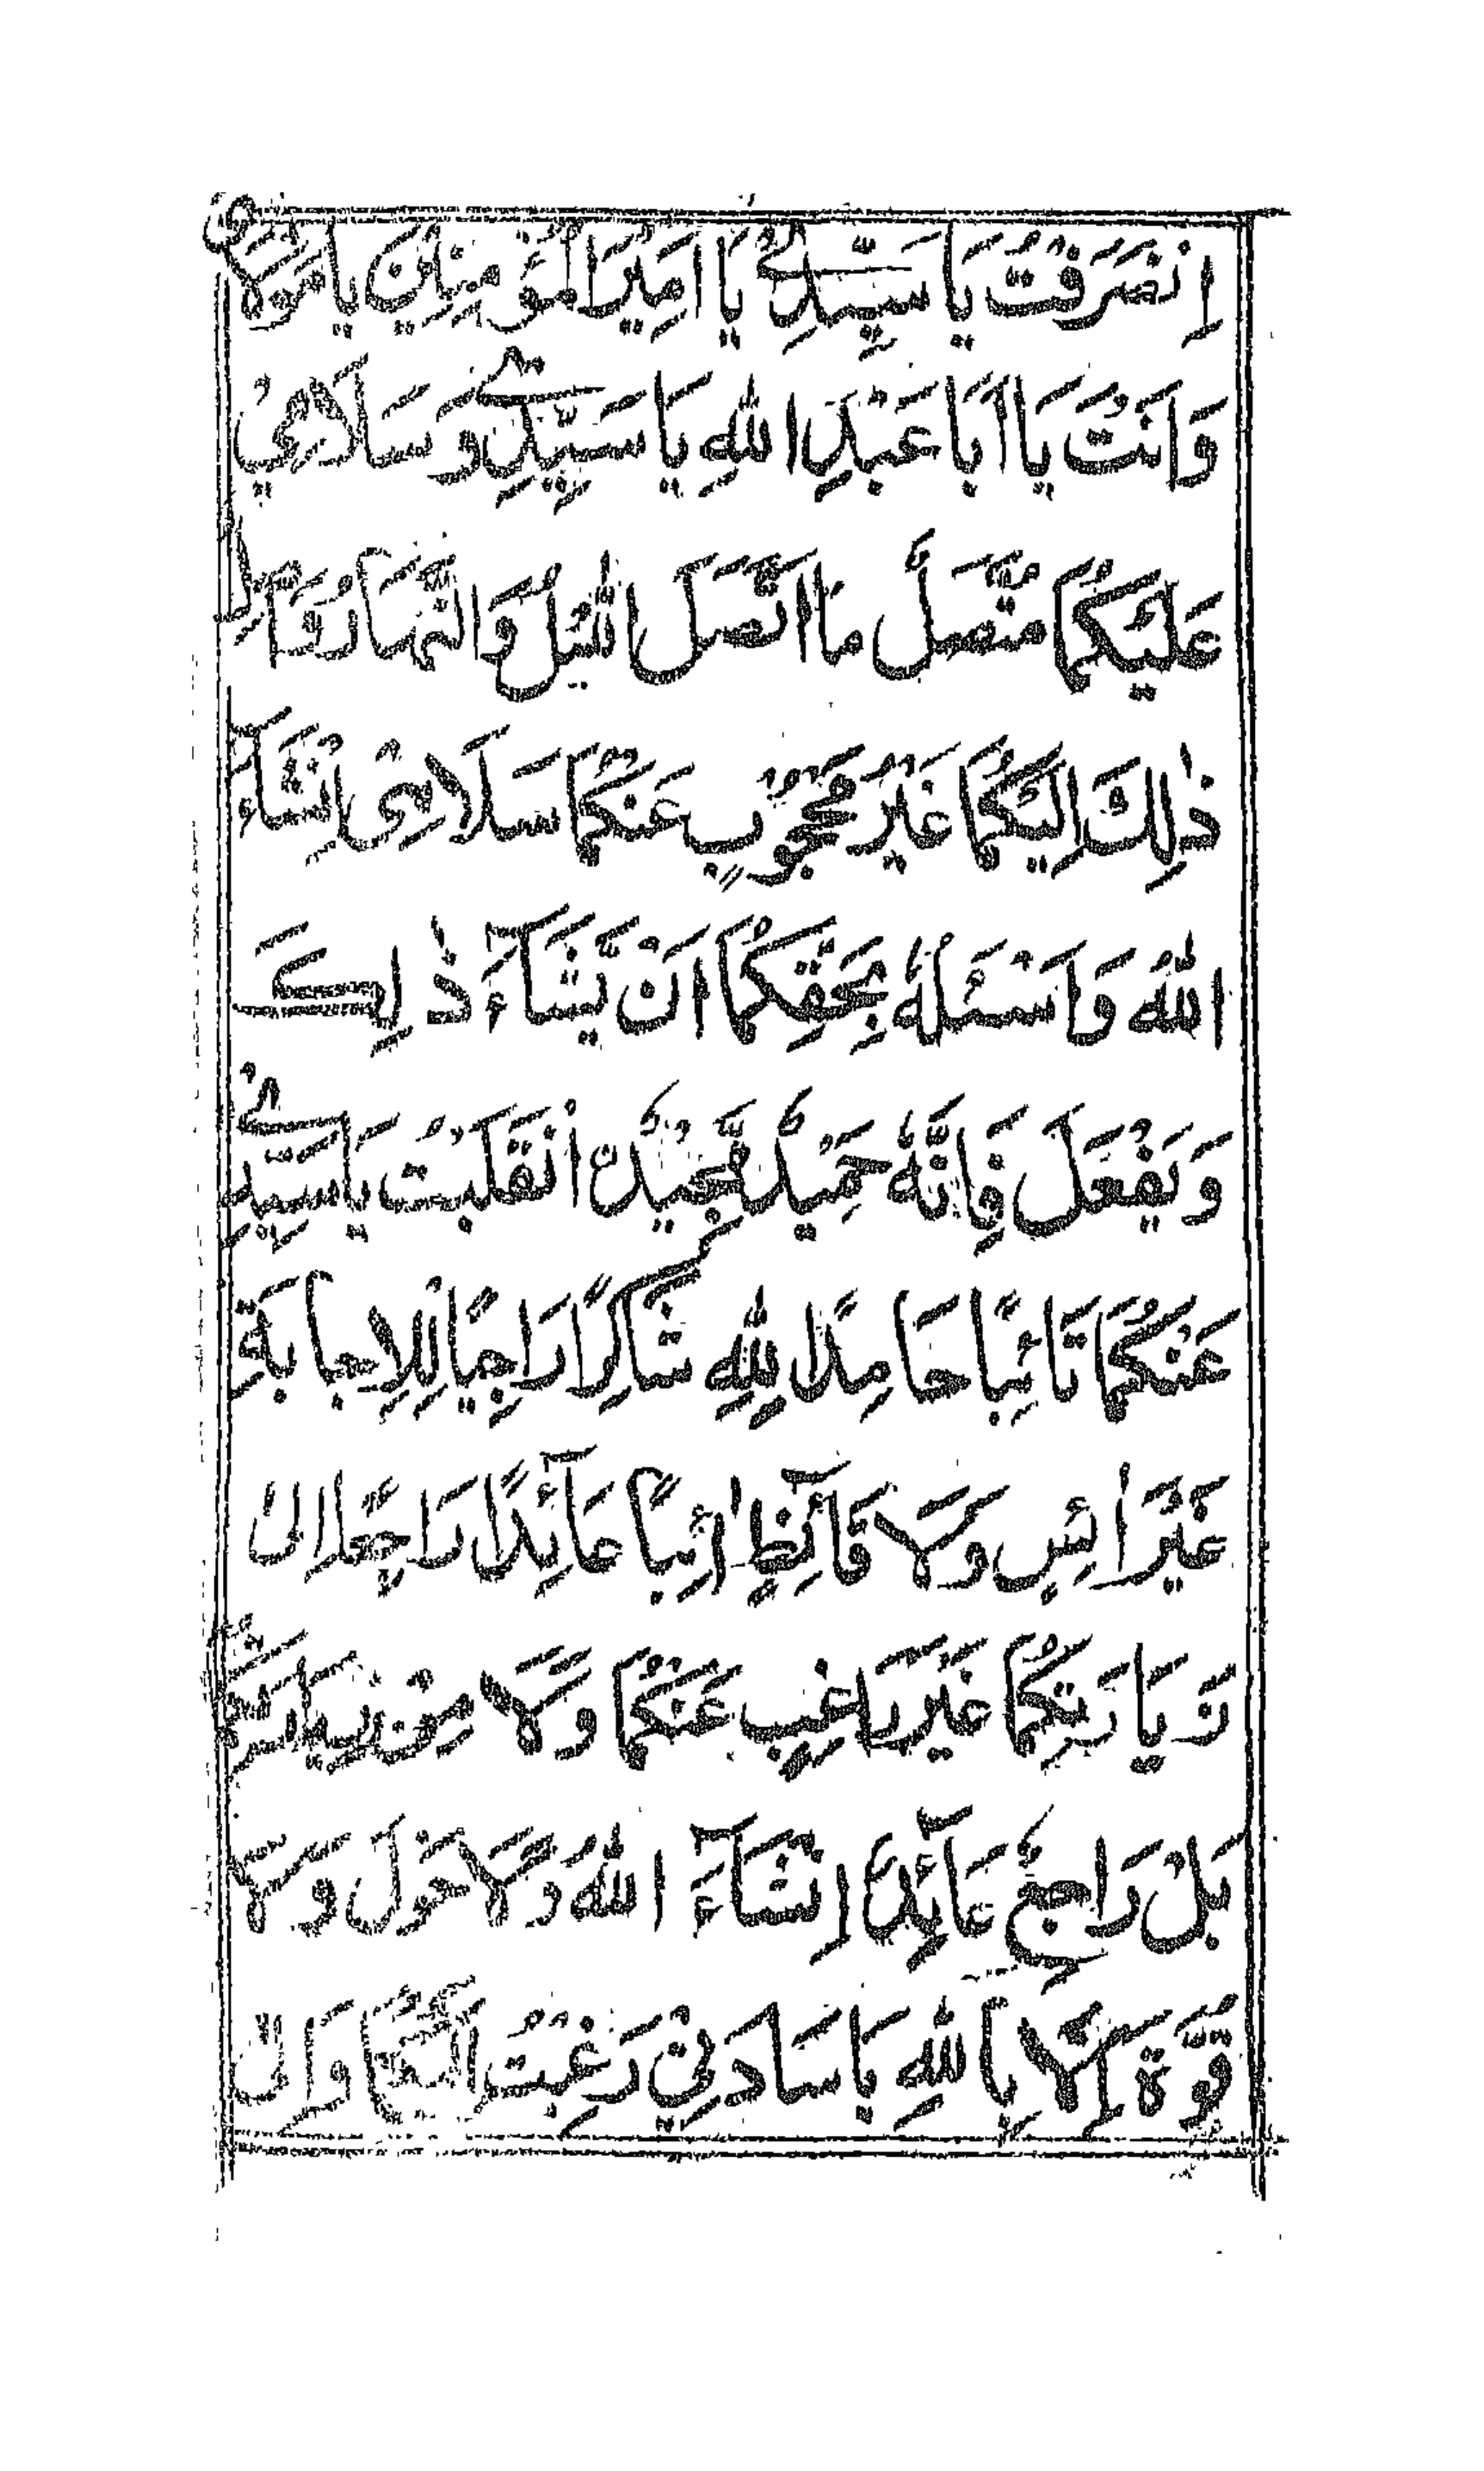 اِنْصَرَفْتُ يَا سَيِّدِىْ يَا اَمِيْرَ الْمُؤْمِنِيْنَ يَا مَوْلَاىَ
وَ اَنْتَ يَا اَبَا عَبْدِ اللهِ يَا سَيِّدِىْ وَ سَلَامِيْ
عَلَيْكُمَا مُتَّصِلٌ مَا اتَّصَلَ اللَّيْلُ وَ النَّهَارُ وَاصِلٌ
ذٰلِكَ اِلَيْكُمَا غَيْرُ مَحْجُوْبٍ عَنْكُمَا سَلَامِىْ اِنْشَآءَ
اللهُ وَ اَسْئَلُهُ بِحَقِّكُمَا اَنْ يَّشَآءَ ذٰلِكَ
وَ يَفْعَلَ فَاِنَّهُ حَمِيْدٌ مَّجِيْدٌ اِنْقَلَبْتُ يَا سَيِّدَىَّ
عَنْكُمَا تَائِبًا حَامِدًا لِلّٰهِ شَاكِرًا رَاجِيًا لِلْاِجَابَةِ
غَيْرَ اٰئِسٍ وَلَا قَانِطٍ اٰئِبًا عَآئِدًا رَاجِعًا اِلٰى
زِيَارَتِكُمَا غَيْرَ رَاغِبٍ عَنْكُمَا وَلَا مِنْ زِيَارَتِكُمَا
بَلْ رَاجِعٌ عَآئِدٌ اِنْشَآءَ اللهُ وَلَا حَوْلَ وَلَا
قُوَّةَ اِلَّا بِاللهِ يَا سَادَتِيْ رَغِبْتُ اِلَيْكُمَا وَ اِلٰى